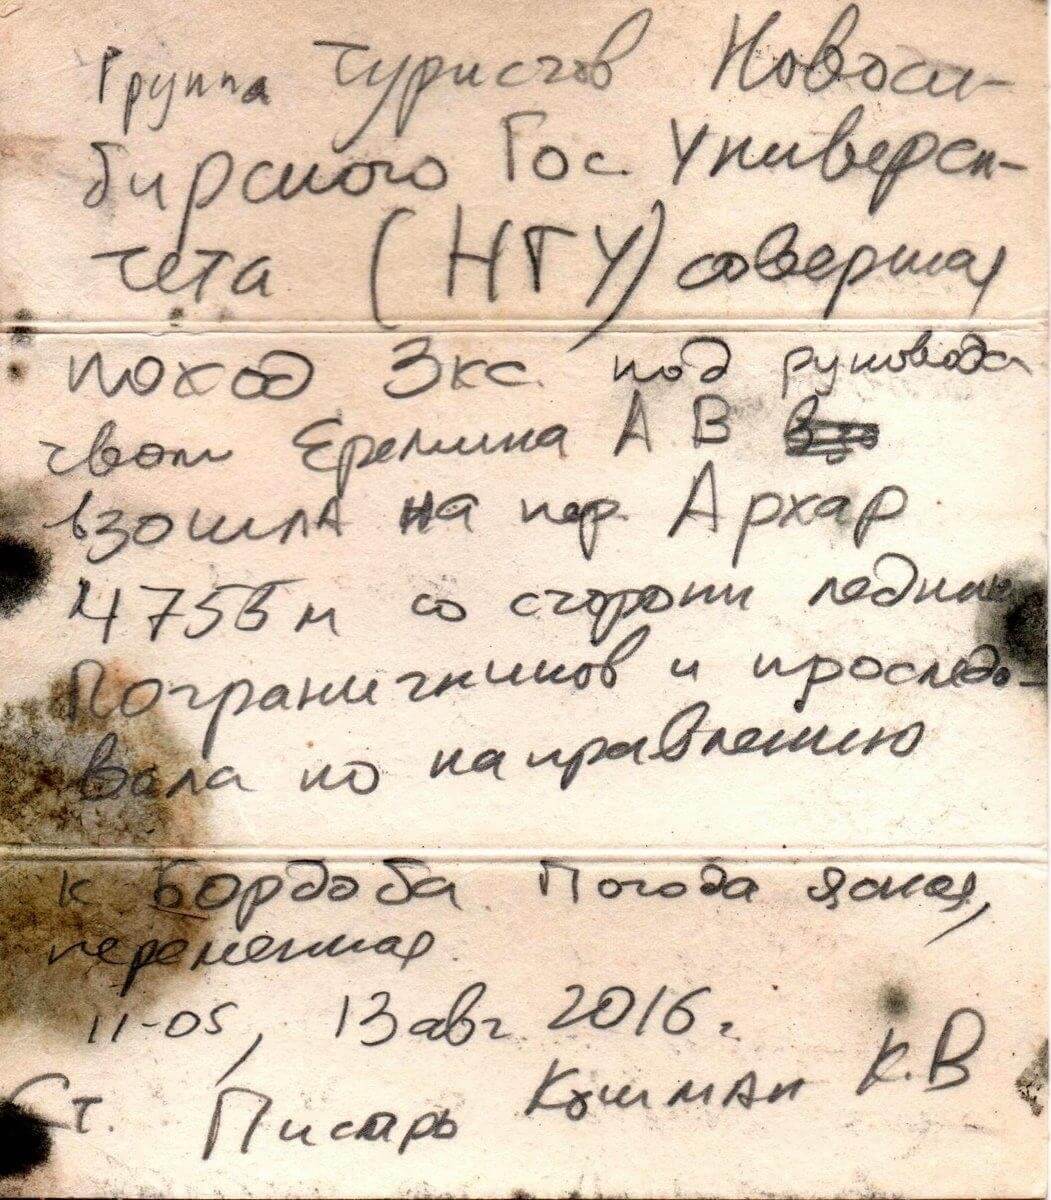 Группа туристов Новоси-
бирского Гос. Универси-
тета (НГУ) совершая
поход 3кс. под руководс
твом Еремина А В
взошла на пер. Архар
4755м со стороны ледника
Пограничников и проследо-
вала по направлению
к Бордоба Погода ясная,
переменная.
11-05, 13 авг 2016 г.
Ст. Писарь Кушман К.В